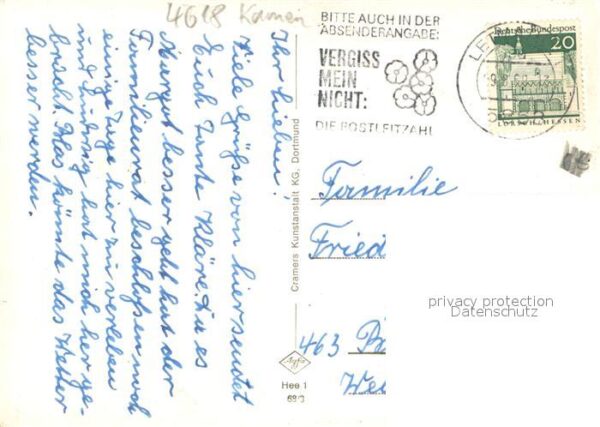 4618 Kamen
BITTE AUCH IN DER
ABSENDERANGABE:
VERGISS
MEIN
NICHT:
DIE POSTLEITZAHL
Deutsche Bundespost
20
LORSCH/HESSEN
Ihr Lieben!
Viele Grüße von hier sendet
Euch Tante Kläre. Da es
Margot besser geht hat der
Familienrat beschloßen noch
einige Tage hier zu verleben
und Ludwig hat mich her ge-
bracht. Blos könnte das Wetter
besser werden.
Cramers Kunstanstalt KG. Dortmund
Agfa
Hee 1
68/3
Familie
Fried
463
privacy protection
Datenschutz